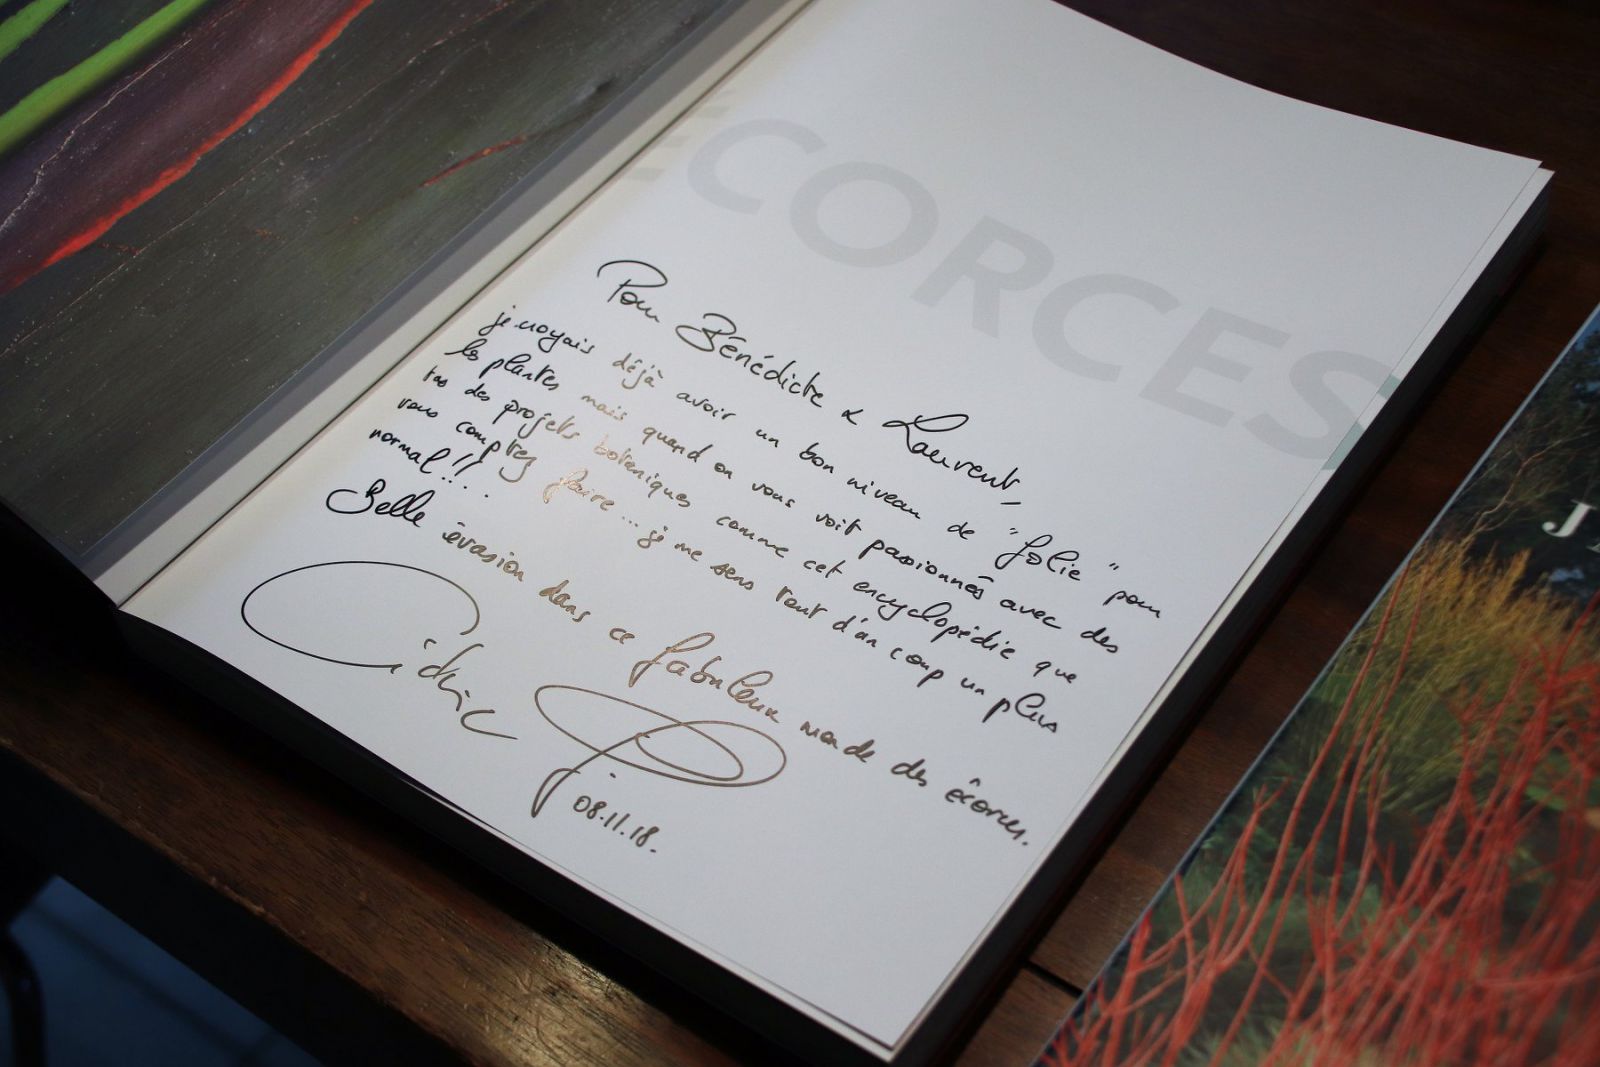 ECORCES
Pour Bénédicte & Laurent,
je voyais déjà avoir un bon niveau de "folie" pour
les plantes mais quand on vous voit passionnés avec des
tas des projets botaniques comme cet encyclopédie que
vous comptez faire... je me sens tout d'un coup un plus
normal!!..
Belle évasion dans ce fabuleux monde des écorces.
Cédric P
08.11.18.
J